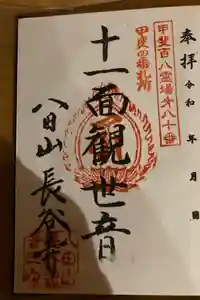 奉拝 令和 年 月 日
甲斐百八霊場第八十番
甲斐四番札所
十一面観世音
八田山 長谷寺